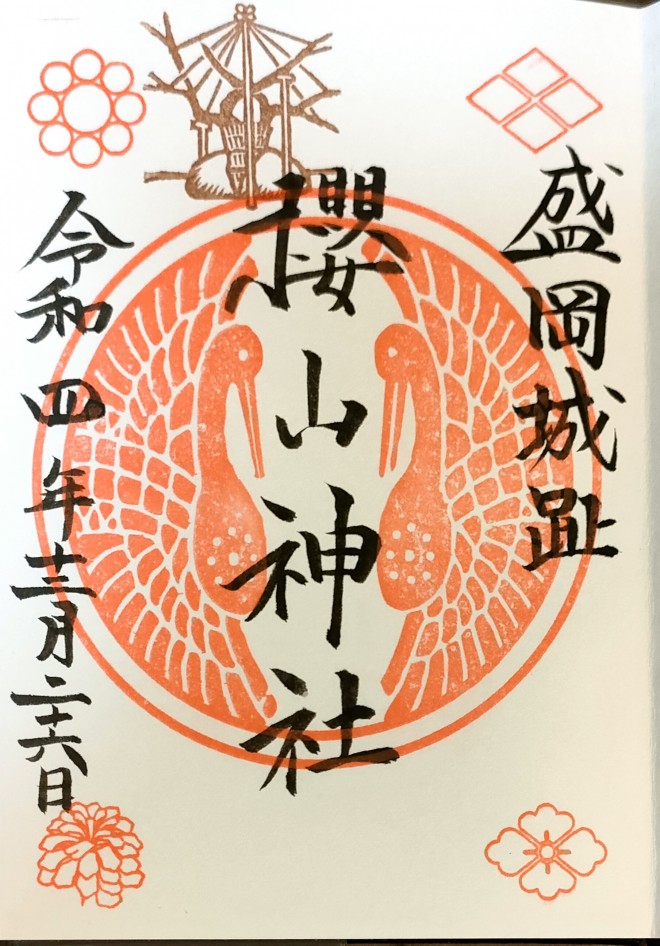 盛岡城趾
櫻山神社
令和四年十二月二十六日